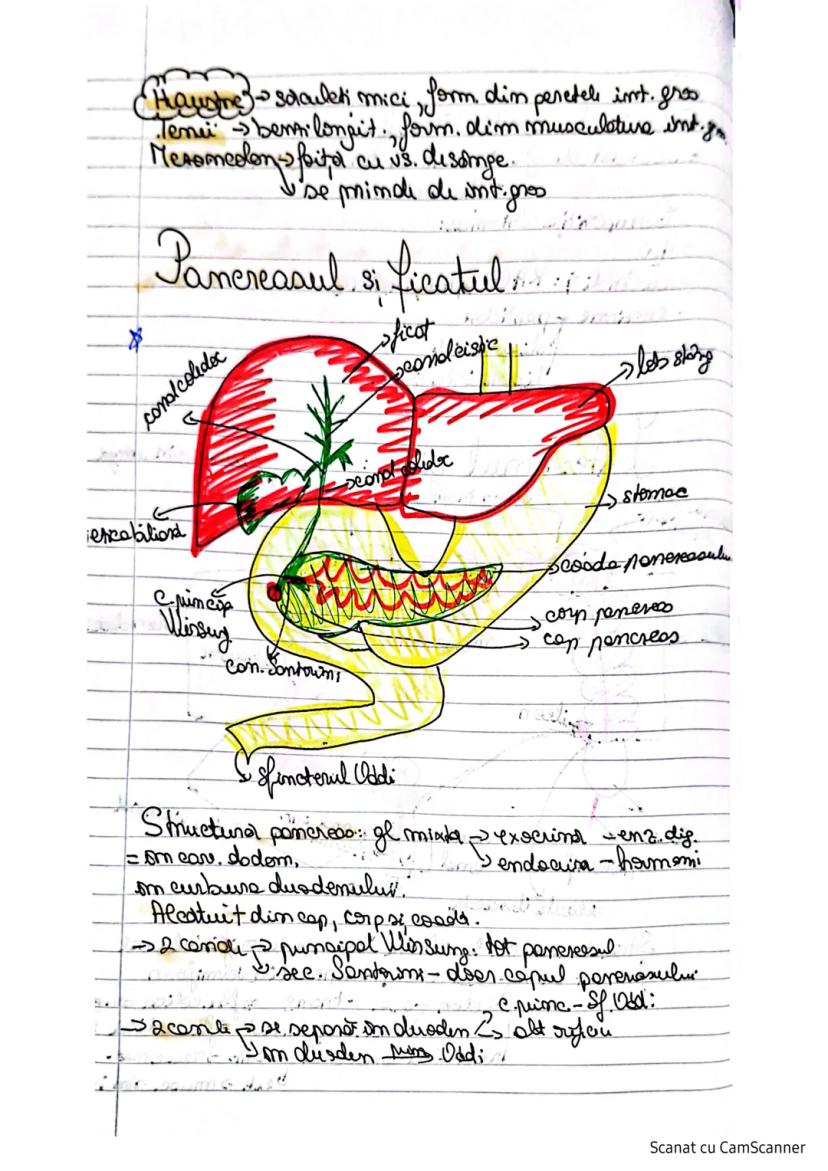 Haustre → săculeți mici, form din peretele int. gros
Tenii → benzi longit., form. din musculatura int. g
Mezocolon → foiță cu vs. de sânge.
↳ se prinde de int. gros
Pancreasul și ficatul
ficat
canal cistic
lob stâng
canal coledoc
canal coledoc
stomac
coada pancreasului
c. princip
Wirsung
corp pancreas
cap pancreas
can. Santorini
sfincterul Oddi
Structura pancreas: gl mixtă → exocrină - enz. dig.
↳ endocrină - hormoni
= în cav. abdom,
în curbura duodenului.
Alcătuit din cap, corp și coadă.
→ 2 canale → principal Wirsung: tot pancreasul
↳ sec. Santorini - doar capul pancreasului
c. princ - Sf Odd:
→ 2 canale → se separă în duoden alt orificiu
↳ în duoden Oddi
Scanat cu CamScanner